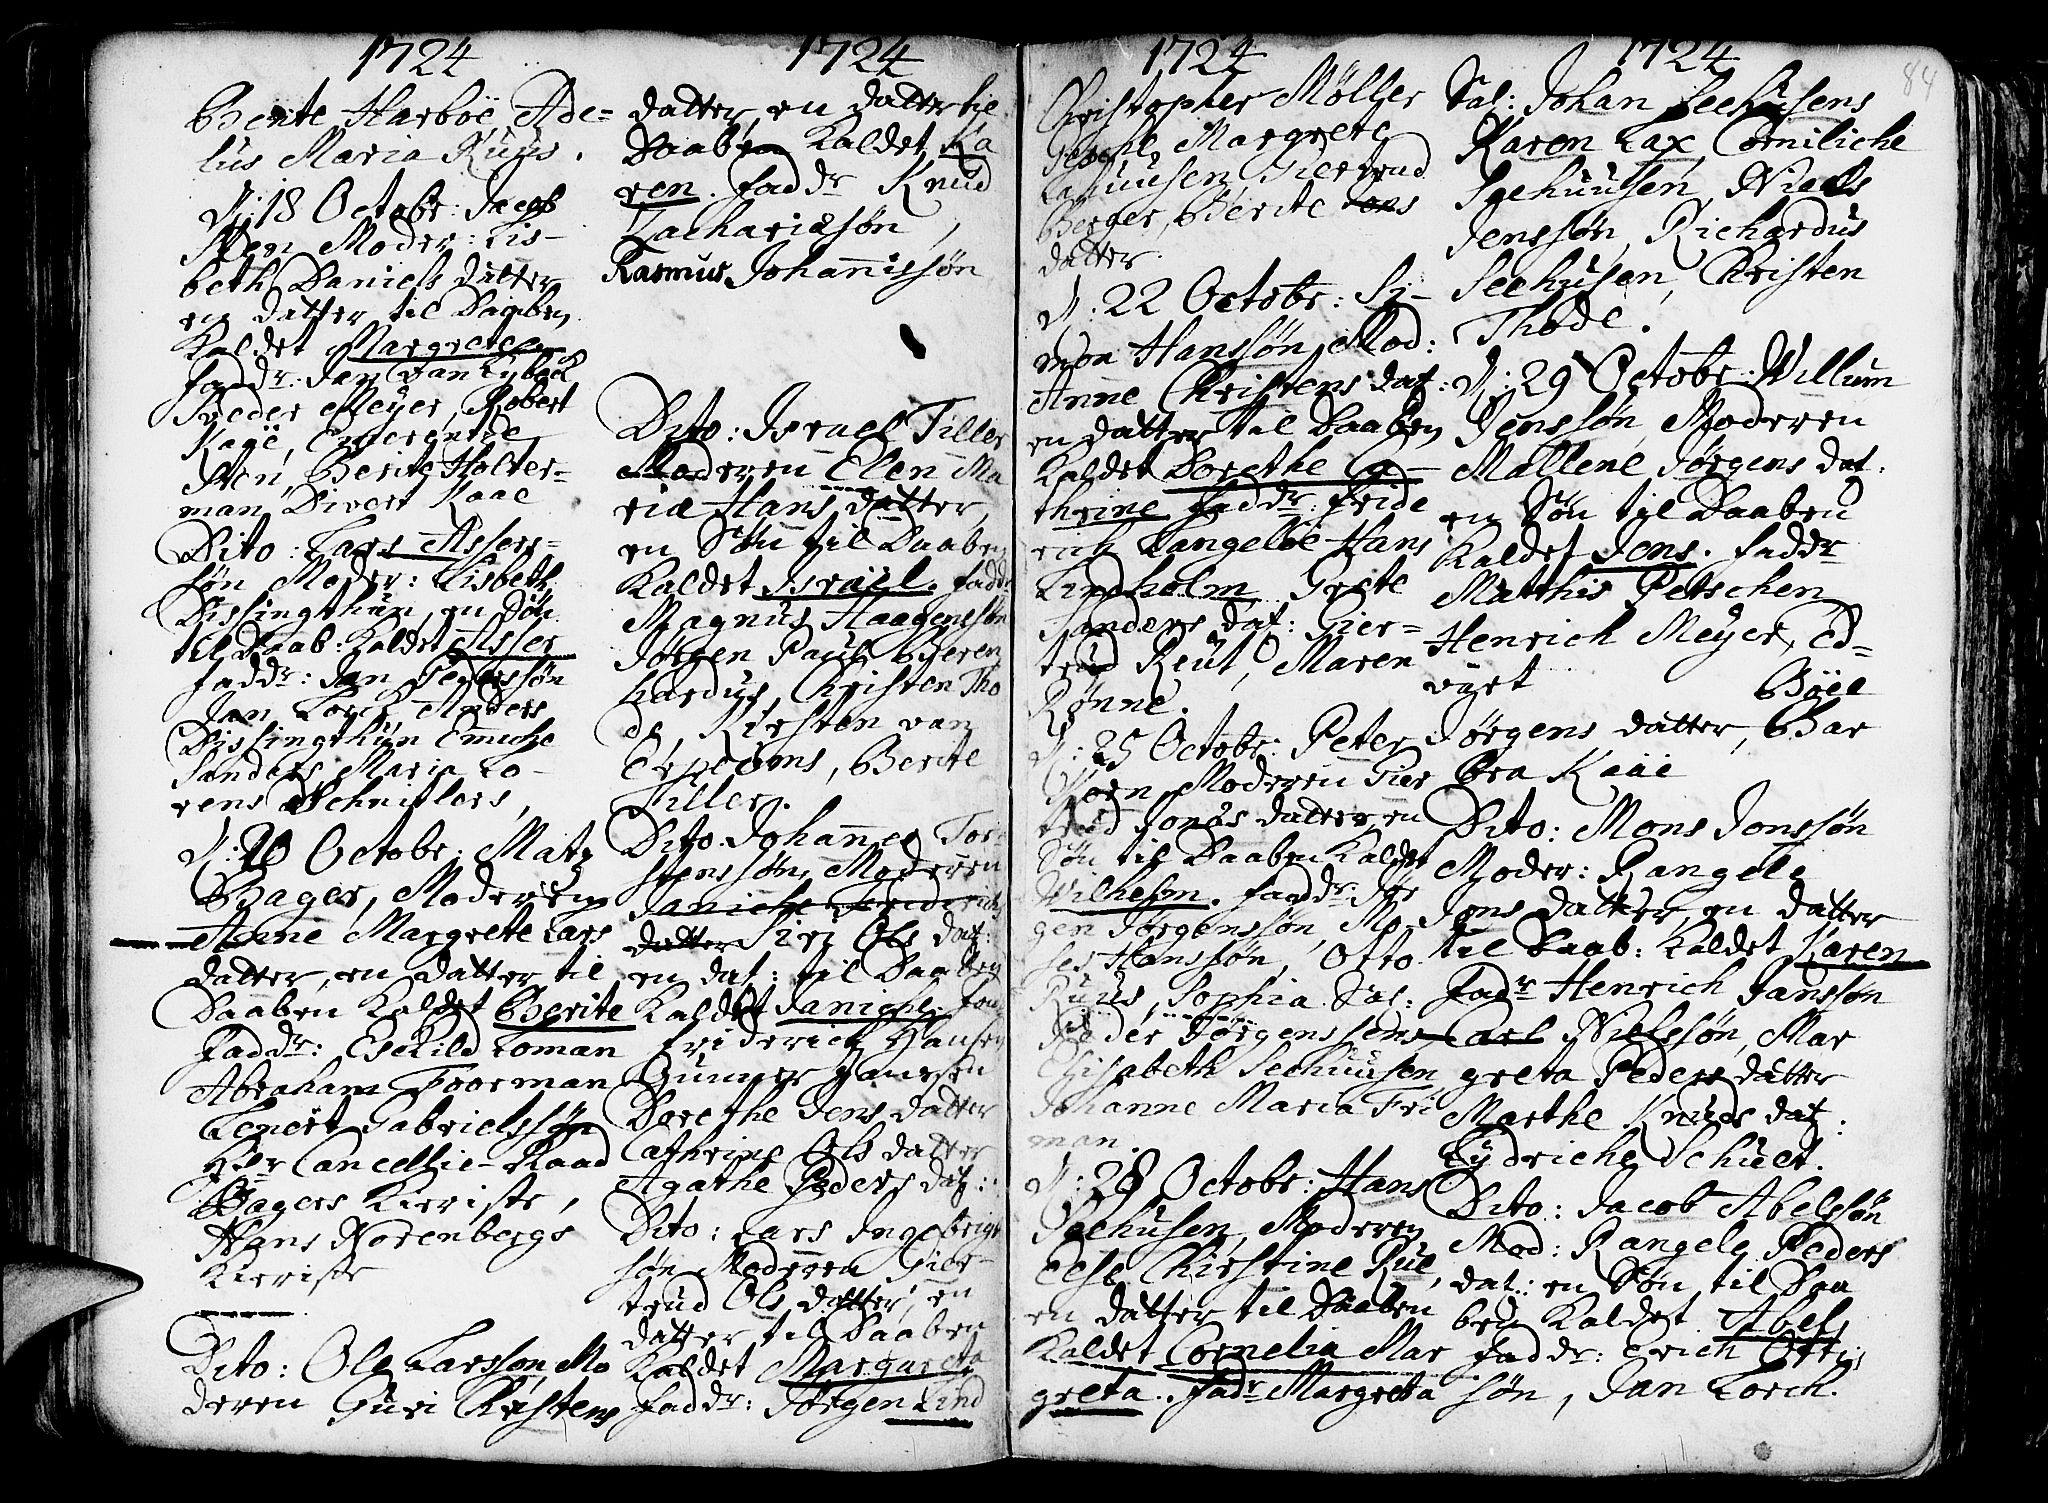 1724
Berite Harboe Ade=
lus Maria Ruus.
d: 18 Octobr: Jacob
Sten Moder: Lis-
beth Daniels datter
en datter til Daaben
Kaldet Margrete
faddr. Jan van Lybeck
Meyer, Robert
Kaae,
Sten, Berite Holter=
man Divert Kaae
Dito: Lars Assers=
søn Moder: Lisbeth
Dissingthun, en Søn
til Daab: Kaldet Asser
faddr: Jan Pederssøn
Jan Lorck Anders
Dissingthun Emiche
Sanders Maria Lo-
rens Schnitlers,
d: 20 Octobr: Matz
Bager, Moderen
Anne Margrete Lars
datter, en datter til
Daaben Kaldet Berite
faddr: Eskild Loman
Abraham Foorman
Lenert Gabrielssøn
Hr Cancellie-Raad
Bagers Kieriste,
Hans Norenbergs
Kieriste
Dito: Ole Larssøn Mo
deren Guri Christens
1724
datter, en datter til
Daaben Kaldet Ka
ren. faddr Knud
Zachariasøn,
Rasmus Johannissøn
Dito: Israel Tiller
Moderen Elen Ma
ria Hans datter,
en Søn til Daaben
Kaldet Israel. faddr
Magnus Haagenssøn
Jørgen Paul Geren
hardus, Christen Tho
de, Kirsten van
Erpecoms, Berite
Tiller.
Dito. Johannes Tor
stenssøn, Moderen
Janiche Friderichs
datter Siri Ols dat:
en dat: til Daaben
Kaldet Janiche. fad
Friderich Hansen
Gunner Jansen
Dorethe Jens datter
Cathrine Ols datter
Agathe Peders dat:
Dito: Lars Ingebrigt
søn Moderen Gier-
trud Ols datter, en
datter til Daaben
Kaldet Margareta
faddr: Jørgen Lind
1724
Christopher Möller
Margrete
Seehuusen, Giertrud
Berger, Berite Ons
datter.
d: 22 Octobr: Si-
mon Hanssøn, Mod:
Anne Christens dat:
en datter til Daaben
Kaldet Dorethe Ca-
thrine faddr: Fride
rich Langeloe Hans
Lindholm Grete
Sanders dat: Gier=
trud Reut, Maren
Rønne.
d: 25 Octobr: Peter
Moderen Gier
trud Jonas datter, en
Søn til Daaben Kaldet
Wilhelm. faddr: Jør
gen Jørgenssøn, Mo
ses Hanssøn, Otto
Ruus, Sophia Sal:
Peder Jørgenssens
Elisabeth Seehuusen
Johanne Maria Fri
man.
d: 28 Octobr: Hans
Seehusen, Moderen
Else Christine Rue,
en datter til Daaben
Kaldet Cornelia Mar
greta. fadr Margreta
1724
84
Sal: Johan Seehusens
Karen Lax, Corniliche
Seehuusen, Niels
Jenssøn, Richardus
Seehusen, Christen
Thode.
d: 29 Octobr: Willum
Jenssøn, Moderen
Mallene Jørgens dat:
en Søn til Daaben
Kaldet Jens. faddr
Matthis Petschen
Henrich Meyer, Ed-
vart Böee
Jørgens datter, Bar
bra Kaae
Dito: Mons Jonssøn
Moder: Rangele
Jens datter, en datter
til Daab: Kaldet Karen
fadr Henrich Jansson
Carl Nielssøn, Mar
greta Peders datter
Marthe Knuds dat:
Lydriche Schult.
Dito: Jacob Abelssøn
Mod: Rangele Peders
dat: en Søn til Daa
ben Kaldet Abel
faddr: Erich Otti
søn, Jan Lorch.